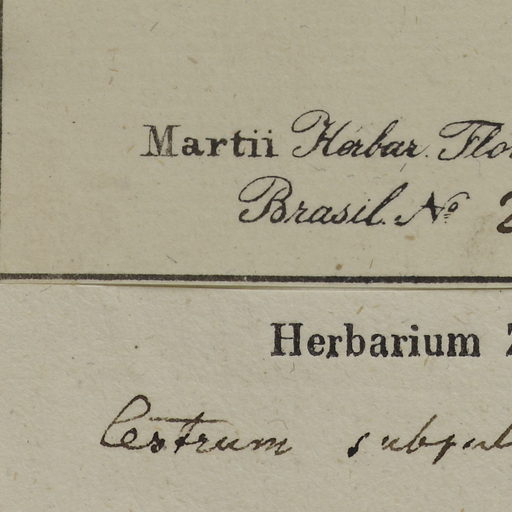 Martii Herbar. Flor
Brasil. No 2
Herbarium Z
Cestrum subpul